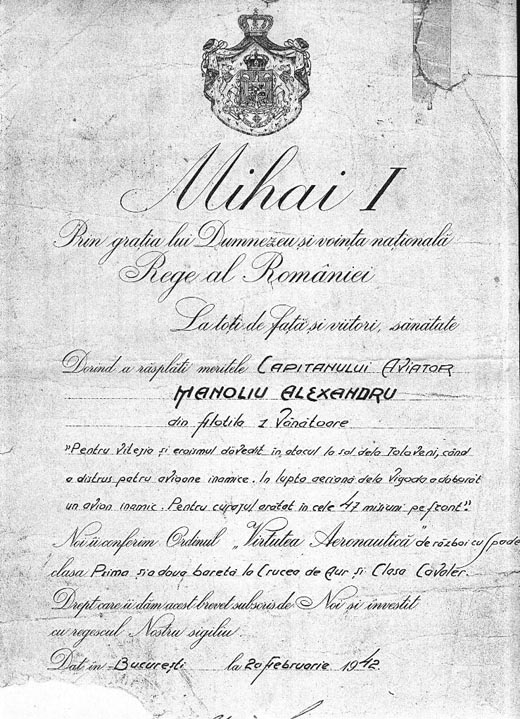 Mihai I
Prin gratia lui Dumnezeu și voința națională
Rege al României
La toți de față și viitori, sănătate
Dorind a răsplăti meritele CAPITANULUI AVIATOR
MANOLIU ALEXANDRU
din flotila 1 Vânătoare
"Pentru vitejia și eroismul dovedit în atacul la sol dela Toloveni, când
a distrus patru avioane inamice. In lupta aeriană dela Vigoda a doborât
un avion inamic. Pentru curajul arătat în cele 47 misiuni pe front".
Noi îi conferim Ordinul „Virtutea Aeronautică" de război cu Spade
clasa Prima și a doua baretă la Crucea de Aur și Clasa Cavaler.
Drept care îi dăm acest brevet subscris de Noi și investit
cu regescul Nostru sigiliu.
Dat în București la 20 Februarie 1942.